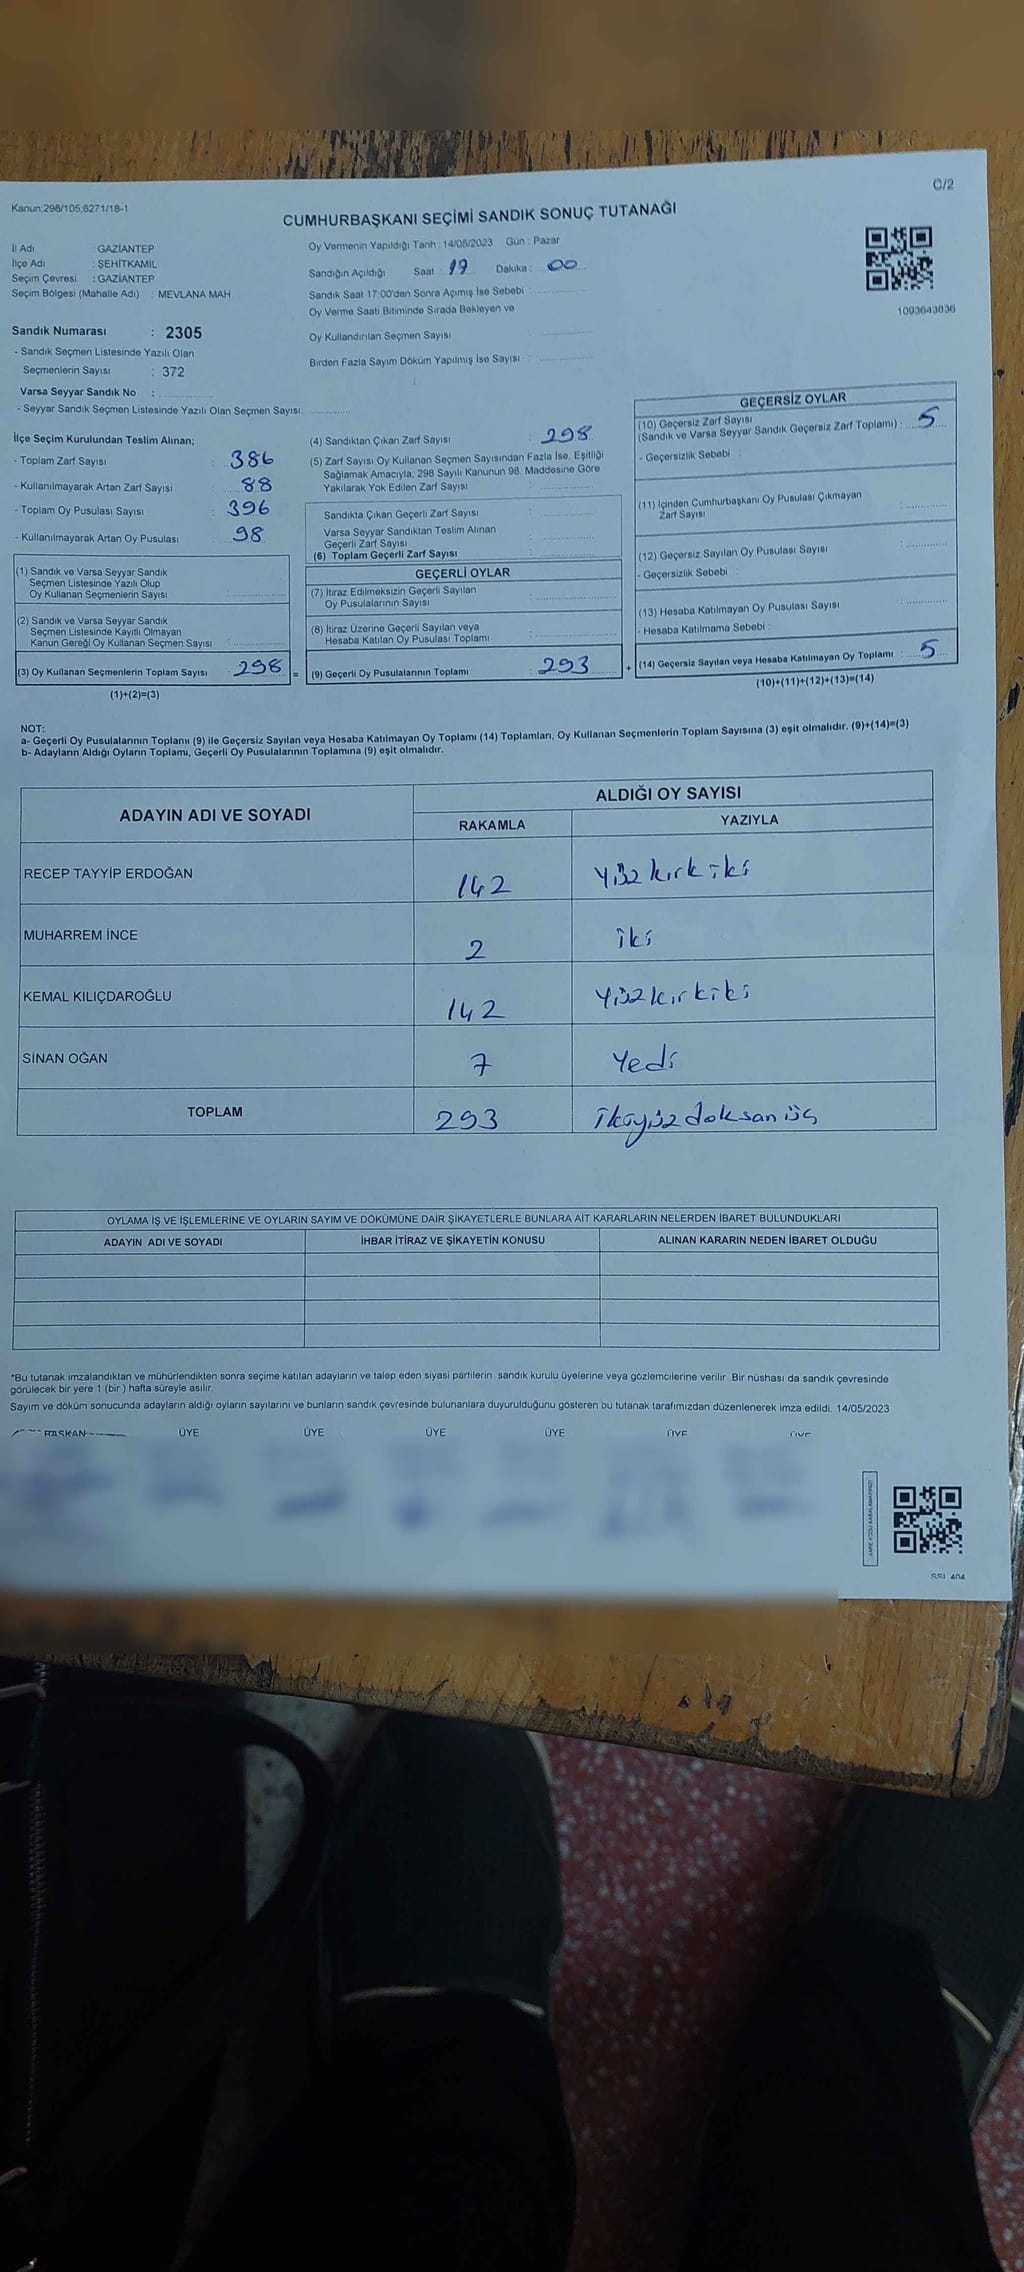 C/2
Kanun;298/105;6271/18-1
CUMHURBAŞKANI SEÇİMİ SANDIK SONUÇ TUTANAĞI
İl Adı : GAZİANTEP
İlçe Adı : ŞEHİTKAMİL
Seçim Çevresi : GAZİANTEP
Seçim Bölgesi (Mahalle Adı) : MEVLANA MAH
Sandık Numarası : 2305
- Sandık Seçmen Listesinde Yazılı Olan
Seçmenlerin Sayısı : 372
Varsa Seyyar Sandık No :
- Seyyar Sandık Seçmen Listesinde Yazılı Olan Seçmen Sayısı:
Oy Vermenin Yapıldığı Tarih : 14/05/2023 Gün : Pazar
Sandığın Açıldığı Saat : 19 Dakika : 00
Sandık Saat 17:00'den Sonra Açımış İse Sebebi :
Oy Verme Saati Bitiminde Sırada Bekleyen ve
Oy Kullandırılan Seçmen Sayısı :
Birden Fazla Sayım Döküm Yapılmış İse Sayısı :
1093643836
İlçe Seçim Kurulundan Teslim Alınan;
- Toplam Zarf Sayısı : 386
- Kullanılmayarak Artan Zarf Sayısı : 88
- Toplam Oy Pusulası Sayısı : 396
- Kullanılmayarak Artan Oy Pusulası : 98
(1) Sandık ve Varsa Seyyar Sandık
Seçmen Listesinde Yazılı Olup
Oy Kullanan Seçmenlerin Sayısı :
(2) Sandık ve Varsa Seyyar Sandık
Seçmen Listesinde Kayıtlı Olmayan
Kanun Gereği Oy Kullanan Seçmen Sayısı :
(3) Oy Kullanan Seçmenlerin Toplam Sayısı : 298 =
(1)+(2)=(3)
(4) Sandıktan Çıkan Zarf Sayısı : 298
(5) Zarf Sayısı Oy Kullanan Seçmen Sayısından Fazla İse, Eşitliği
Sağlamak Amacıyla, 298 Sayılı Kanunun 98. Maddesine Göre
Yakılarak Yok Edilen Zarf Sayısı :
Sandıkta Çıkan Geçerli Zarf Sayısı :
Varsa Seyyar Sandıktan Teslim Alınan
Geçerli Zarf Sayısı :
(6) Toplam Geçerli Zarf Sayısı :
GEÇERLİ OYLAR
(7) İtiraz Edilmeksizin Geçerli Sayılan
Oy Pusulalarının Sayısı :
(8) İtiraz Üzerine Geçerli Sayılan veya
Hesaba Katılan Oy Pusulası Toplamı :
(9) Geçerli Oy Pusulalarının Toplamı : 293 +
GEÇERSİZ OYLAR
(10) Geçersiz Zarf Sayısı
(Sandık ve Varsa Seyyar Sandık Geçersiz Zarf Toplamı) : 5
- Geçersizlik Sebebi :
(11) İçinden Cumhurbaşkanı Oy Pusulası Çıkmayan
Zarf Sayısı :
(12) Geçersiz Sayılan Oy Pusulası Sayısı :
- Geçersizlik Sebebi :
(13) Hesaba Katılmayan Oy Pusulası Sayısı :
- Hesaba Katılmama Sebebi :
(14) Geçersiz Sayılan veya Hesaba Katılmayan Oy Toplamı : 5
(10)+(11)+(12)+(13)=(14)
NOT:
a- Geçerli Oy Pusulalarının Toplamı (9) ile Geçersiz Sayılan veya Hesaba Katılmayan Oy Toplamı (14) Toplamları, Oy Kullanan Seçmenlerin Toplam Sayısına (3) eşit olmalıdır. (9)+(14)=(3)
b- Adayların Aldığı Oyların Toplamı, Geçerli Oy Pusulalarının Toplamına (9) eşit olmalıdır.
ADAYIN ADI VE SOYADI ALDIĞI OY SAYISI
RAKAMLA YAZIYLA
RECEP TAYYİP ERDOĞAN 142 Yüz kırk iki
MUHARREM İNCE 2 iki
KEMAL KILIÇDAROĞLU 142 Yüzkırkiki
SİNAN OĞAN 7 Yedi
TOPLAM 293 ikiyüz doksan üç
OYLAMA İŞ VE İŞLEMLERİNE VE OYLARIN SAYIM VE DÖKÜMÜNE DAİR ŞİKAYETLERLE BUNLARA AİT KARARLARIN NELERDEN İBARET BULUNDUKLARI
ADAYIN ADI VE SOYADI İHBAR İTİRAZ VE ŞİKAYETİN KONUSU ALINAN KARARIN NEDEN İBARET OLDUĞU
*Bu tutanak imzalandıktan ve mühürlendikten sonra seçime katılan adayların ve talep eden siyasi partilerin sandık kurulu üyelerine veya gözlemcilerine verilir. Bir nüshası da sandık çevresinde
görülecek bir yere 1 (bir ) hafta süreyle asılır.
Sayım ve döküm sonucunda adayların aldığı oyların sayılarını ve bunların sandık çevresinde bulunanlara duyurulduğunu gösteren bu tutanak tarafımızdan düzenlenerek imza edildi. 14/05/2023
BAŞKAN ÜYE ÜYE ÜYE ÜYE ÜYE ÜYE